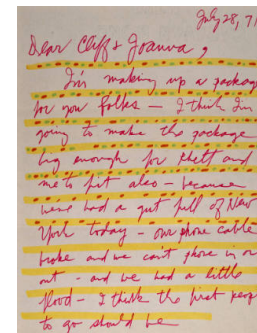 July 28, 71
Dear Cliff & Joanna,
I'm making up a package
for you folks — I think I'm
going to make the package
big enough for Rhett and
me to fit also – because
we've had a gut full of New
York today – our phone cable
broke and we can't phone in or
out - and we had a little
flood – I think the first
to go should be